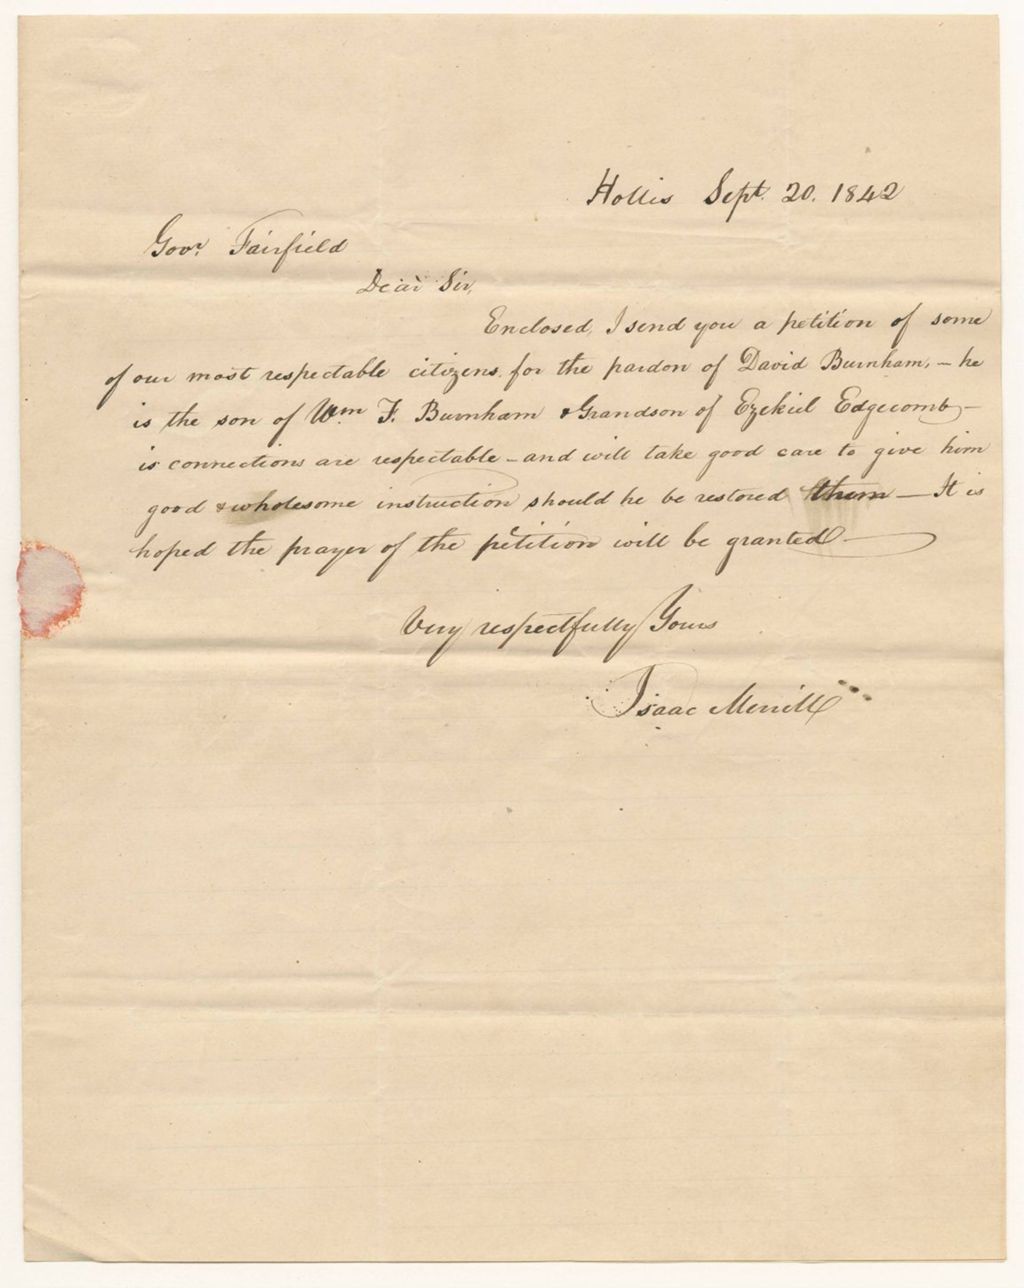 Hollis Sept. 20. 1842
Govr. Fairfield
Dear Sir,
Enclosed, I send you a petition of some
of our most respectable citizens, for the pardon of David Burnham, - he
is the son of Wm F. Burnham & Grandson of Ezekiel Edgecomb -
is connections are respectable - and will take good care to give him
good & wholesome instruction should he be restored them - It is
hoped the prayer of the petition will be granted -
Very respectfully Yours
Isaac Merrill